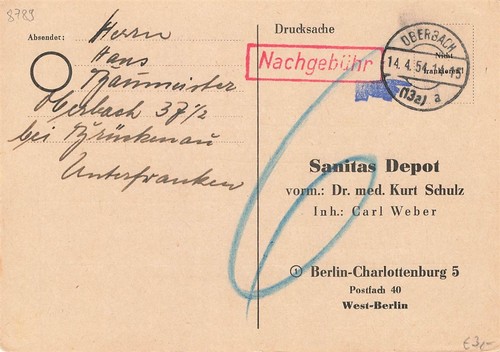 8789
Drucksache
Absender:
Herrn
Hans
Baumeister
Oberbach 37 1/2
bei Brückenau
Unterfranken
Nachgebühr
OBERBACH
14.4.54.11-15
(13a) a
Nicht
frankieren!
6
Sanitas Depot
vorm.: Dr. med. Kurt Schulz
Inh.: Carl Weber
① Berlin-Charlottenburg 5
Postfach 40
West-Berlin
€3,-